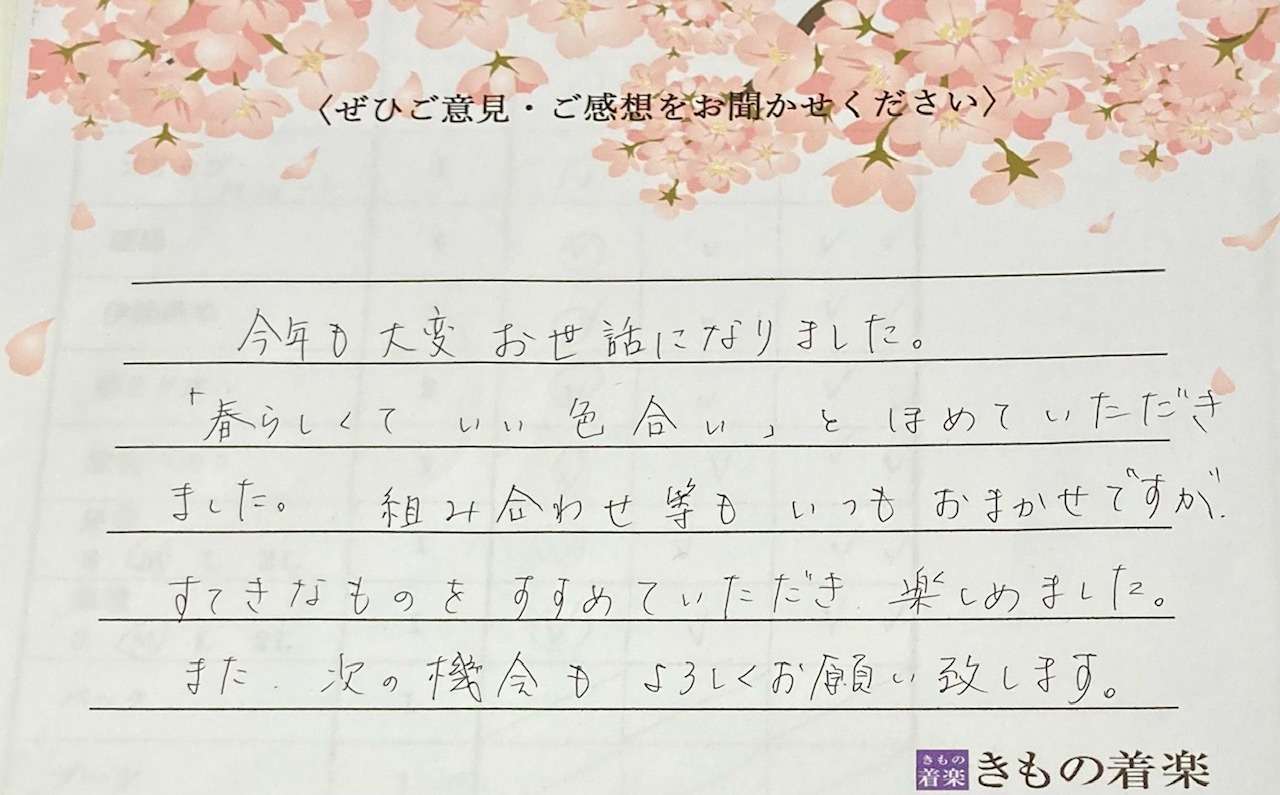 〈ぜひご意見・ご感想をお聞かせください〉
今年も大変お世話になりました。
「春らしくていい色合い」とほめていただき
ました。 組み合わせ等もいつもおまかせですが、
すてきなものをすすめていただき、楽しめました。
また、次の機会もよろしくお願い致します。
きもの
着楽
きもの着楽